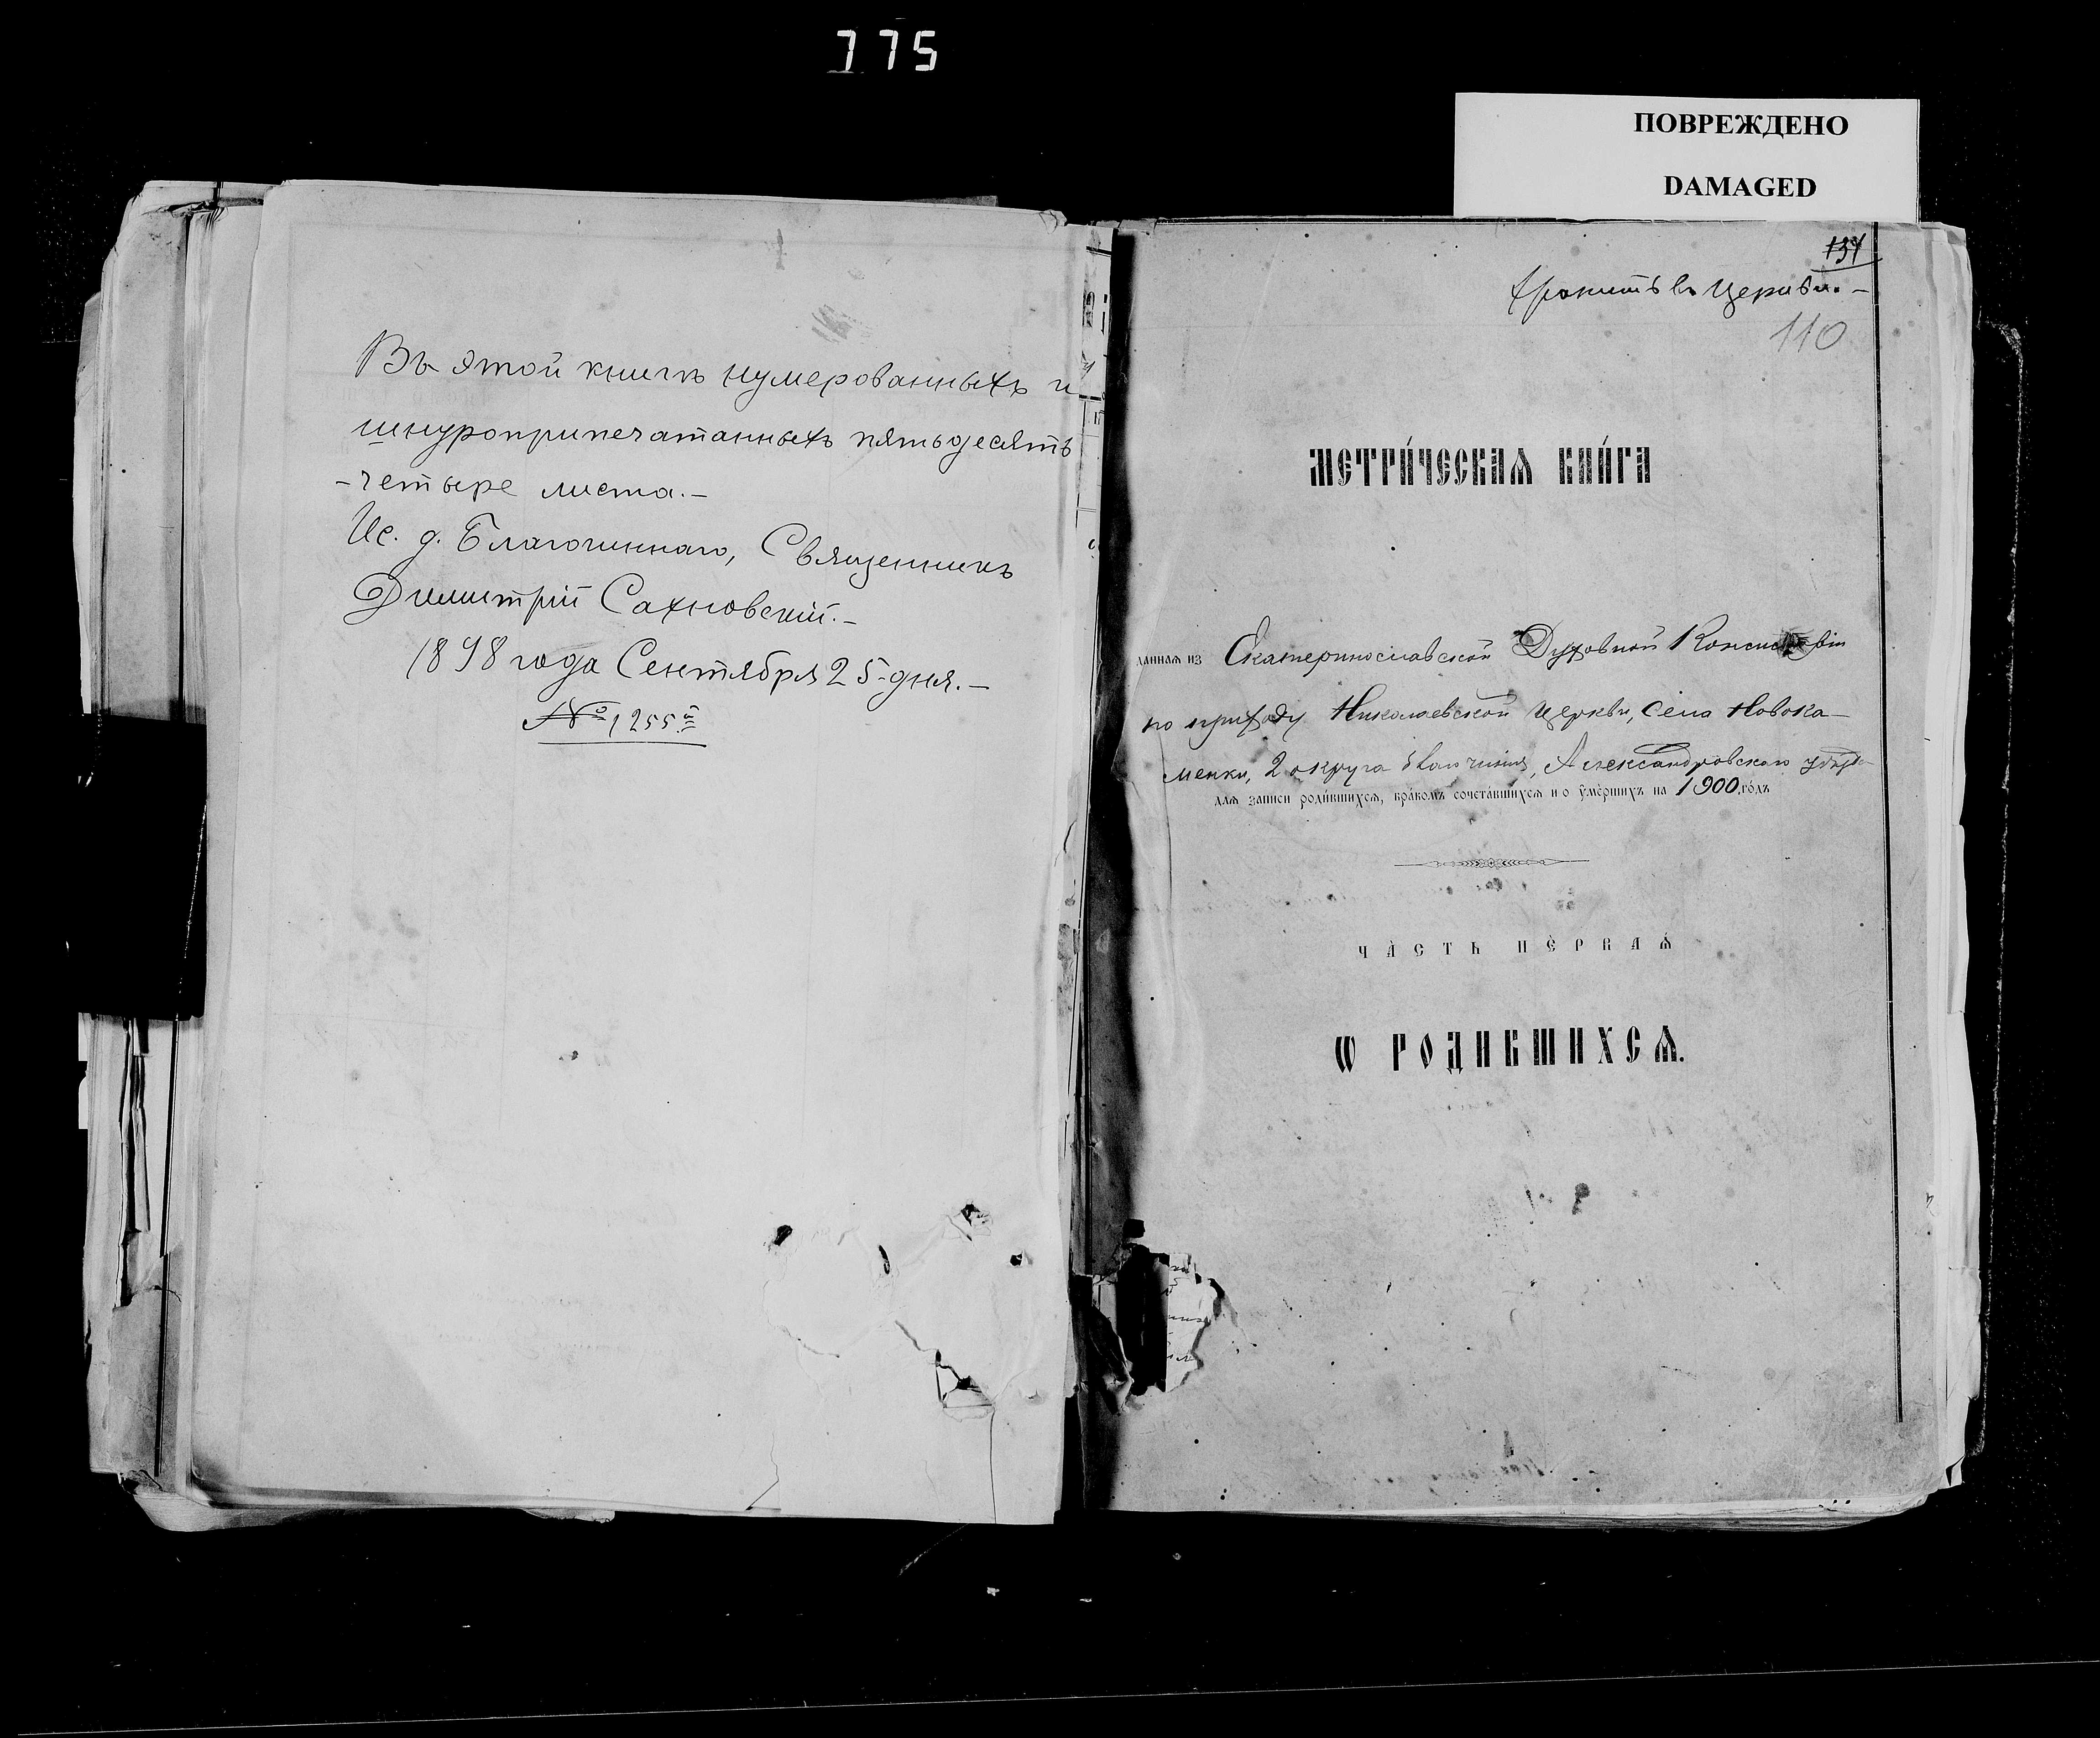 775
ПОВРЕЖДЕНО
DAMAGED
Въ этой книгѣ нумерованныхъ и
шнуроприпечатанныхъ пятьдесятъ
-четыре листа.-
Ис. д. Благочиннаго, Священникъ
Димитрій Сахновскій.-
1898 года Сентября 25-дня.-
№ 1255й
134
Хранить въ Церкви.-
110
МЕТРИ́ЧЕСКАѦ КНИ́ГА
даннаѧ из Екатеринославской Духовной Консисторіи
по приходу Николаевской церкви, села Новока-
менки, 2 округа благочинія, Александровскаго уѣзда
длѧ записи роди́вшихсѧ, бра́комъ сочета́вшихсѧ и о ᲂуме́ршихъ на 1900 го́дъ
ЧА́СТЬ ПЕ́РВАѦ
Ѡ РОДИВШИХСѦ.